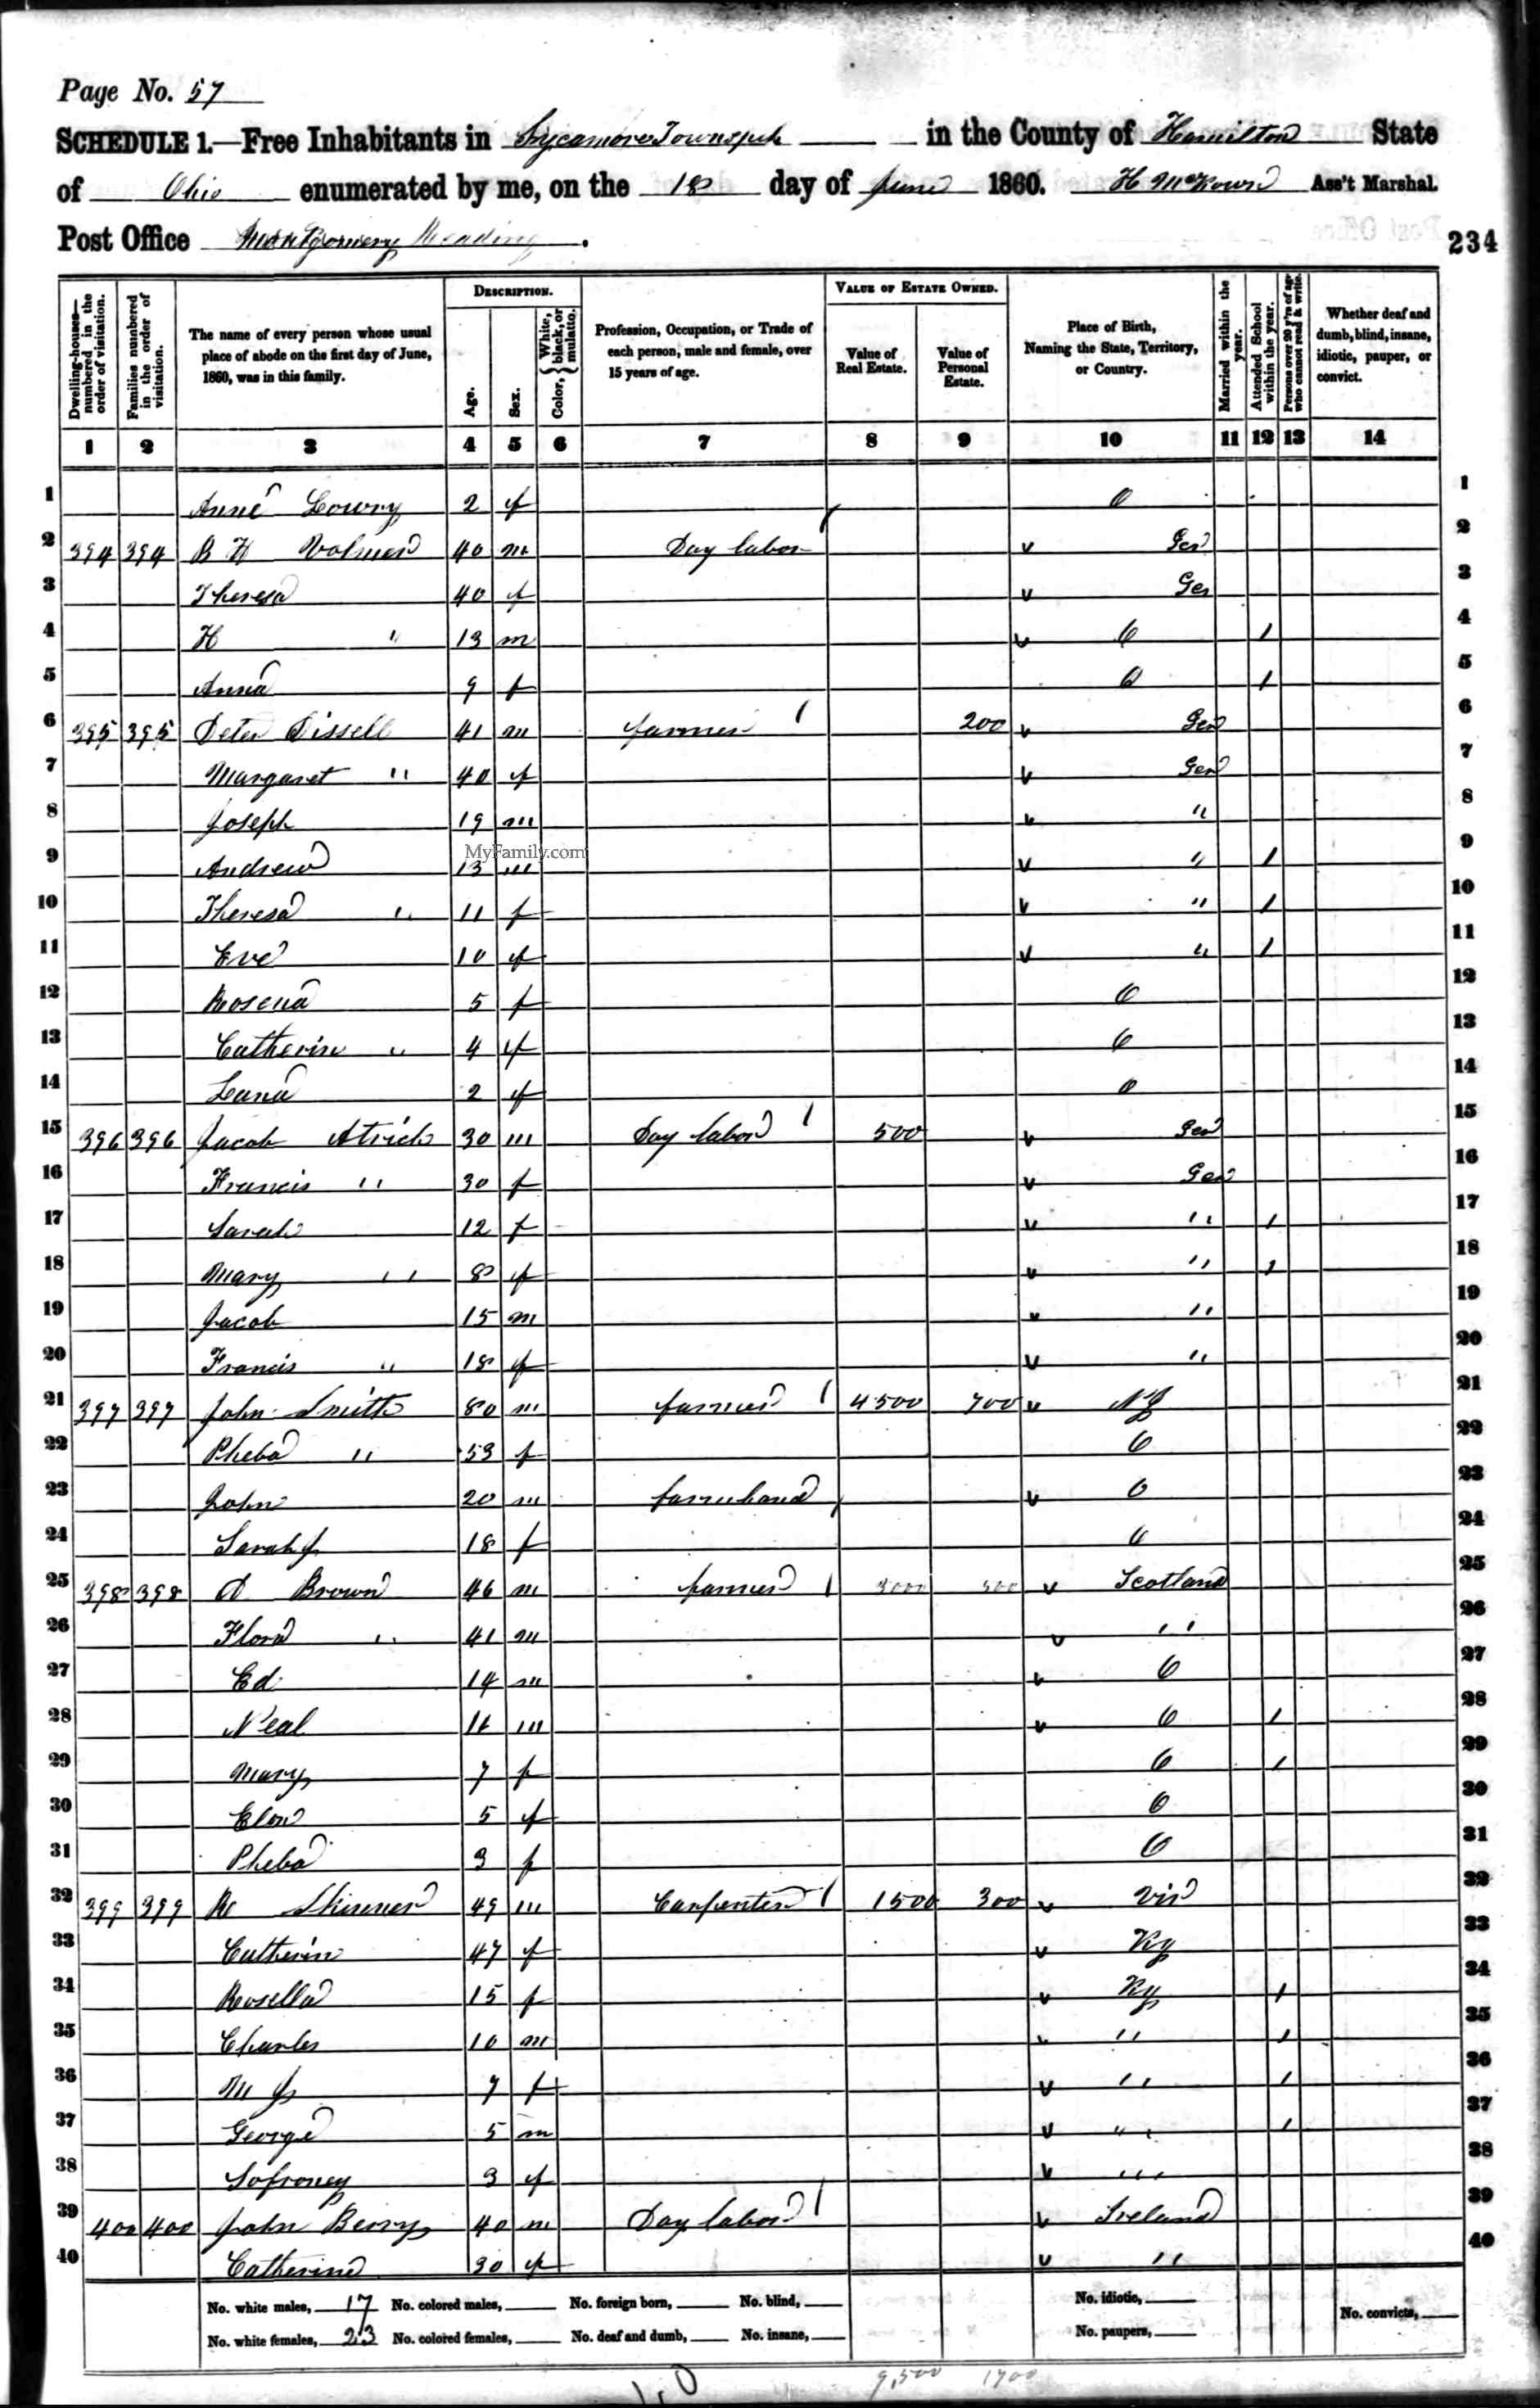 Page No. 57
SCHEDULE 1.—Free Inhabitants in Sycamore Township in the County of Hamilton State
of Ohio enumerated by me, on the 18 day of June 1860. H McKown Ass't Marshal.
Post Office Montgomery Reading.
234
Dwelling-houses—numbered in the order of visitation.
Families numbered in the order of visitation.
The name of every person whose usual place of abode on the first day of June, 1860, was in this family.
DESCRIPTION.
Age.
Sex.
Color, { White, black, or mulatto.
Profession, Occupation, or Trade of each person, male and female, over 15 years of age.
VALUE OF ESTATE OWNED.
Value of Real Estate.
Value of Personal Estate.
Place of Birth, Naming the State, Territory, or Country.
Married within the year.
Attended School within the year.
Persons over 20 y'rs of age who cannot read & write.
Whether deaf and dumb, blind, insane, idiotic, pauper, or convict.
1 2 3 4 5 6 7 8 9 10 11 12 13 14
1 Anne Lowry 2 f O 1
2 394 394 B H Volmer 40 m Day labor v Ger 2
3 Theresa 40 f v Ger 3
4 H " 13 m v O 1 4
5 Anna 9 f O 1 5
6 395 395 Peter Dissell 41 m farmer 200 v Ger 6
7 Margaret " 40 f v Ger 7
8 Joseph 19 m v " 8
MyFamily.com
9 Andrew 13 m v " 1 9
10 Theresa " 11 f v " 1 10
11 Eve 10 f v " 1 11
12 Rosena 5 f O 12
13 Catherin " 4 f O 13
14 Lana 2 f O 14
15 396 396 Jacob Atrich 30 m Day labor 500 v Ger 15
16 Francis " 30 f v Ger 16
17 Sarah 12 f v " 1 17
18 Mary " 8 f v " 1 18
19 Jacob 15 m v " 19
20 Francis " 18 f v " 20
21 397 397 John Smith 80 m farmer 4500 700 v NJ 21
22 Pheba " 53 f O 22
23 John 20 m farmhand v O 23
24 Sarah J 18 f O 24
25 398 398 A Brown 46 m farmer 3000 500 v Scotland 25
26 Flora " 41 m v " 26
27 Ed 14 m v O 27
28 Neal 11 m v O 1 28
29 Mary 7 f O 1 29
30 Elon 5 f O 30
31 Pheba 3 f O 31
32 399 399 R Skinner 49 m Carpenter 1500 300 v Vir 32
33 Catherin 47 f v Ky 33
34 Rosella 15 f v Ky 1 34
35 Charles 10 m v " 1 35
36 M J 7 f v " 1 36
37 George 5 m v " 1 37
38 Sofroney 3 f v " 38
39 400 400 John Berry 40 m Day labor v Ireland 39
40 Catherine 30 f v " 40
No. white males, 17 No. colored males, No. foreign born, No. blind, No. idiotic, No. convicts,
No. white females, 23 No. colored females, No. deaf and dumb, No. insane, No. paupers,
9,500 1700